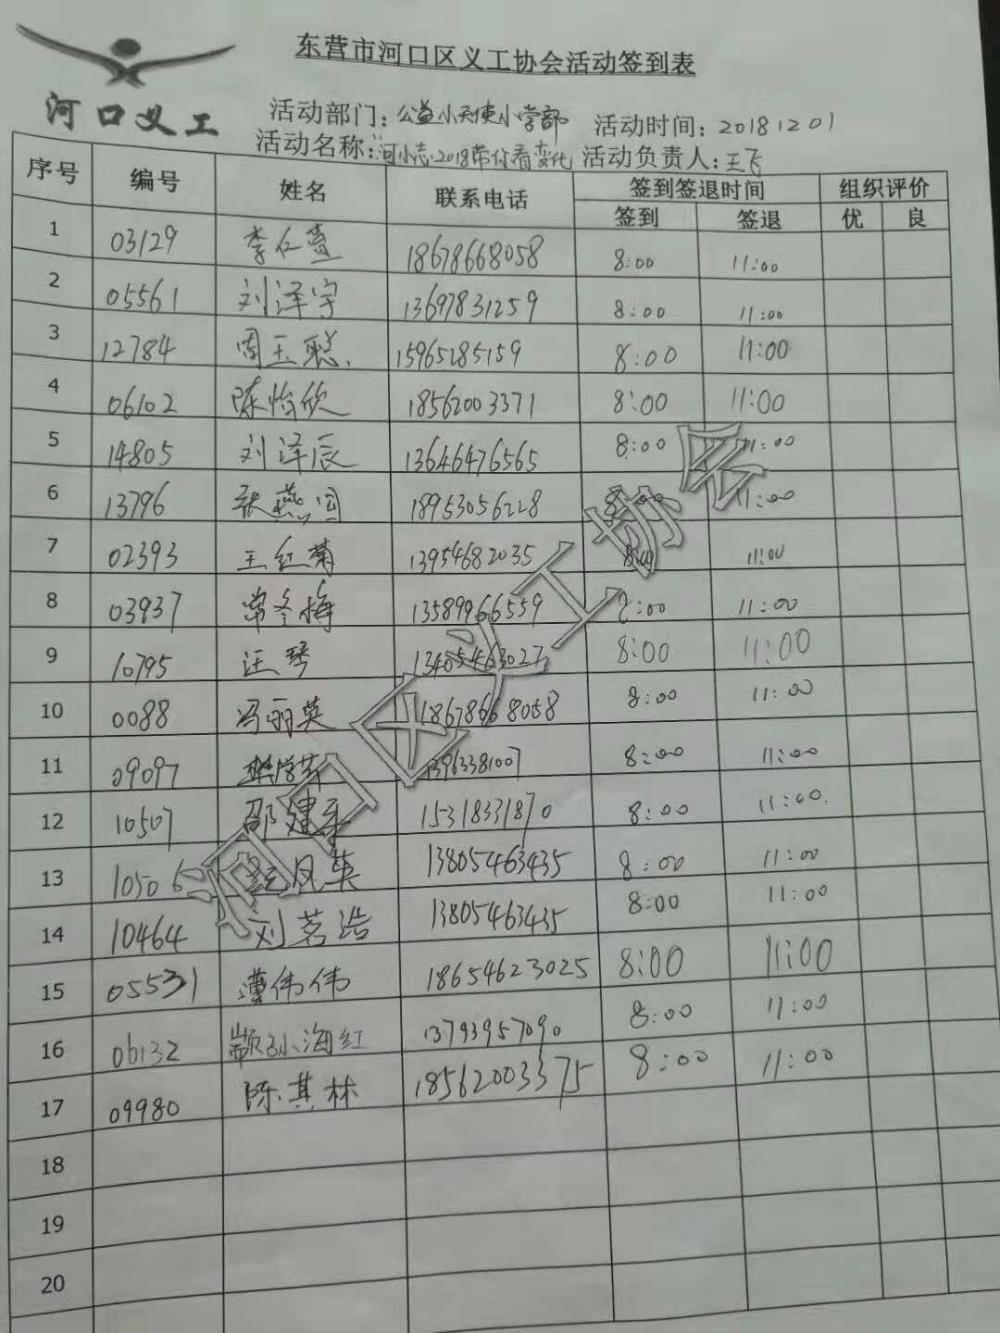 东营市河口区义工协会活动签到表
河口义工
活动部门：公益小天使小学部 活动时间：20181201
活动名称：“河小志·2018带你看变化 活动负责人：王飞
序号 编号 姓名 联系电话 签到签退时间 组织评价
签到 签退 优 良
1 03129 李仁萱 18678668058 8:00 11:00
2 05561 刘泽宇 13697831259 8:00 11:00
3 12784 周玉聪 15965285159 8:00 11:00
4 06102 陈怡欣 18562003371 8:00 11:00
5 14805 刘泽辰 13646476565 8:00 11:00
6 13796 张燕 18953056228 8:00 11:00
7 02393 王红菊 13954682035 8:00 11:00
8 03937 常冬梅 13589966559 8:00 11:00
9 10795 汪琴 13405463027 8:00 11:00
10 0088 冯丽英 18678668058 8:00 11:00
11 09097 13963381007 8:00 11:00
12 10507 邵建 15318331870 8:00 11:00
13 10506 凤英 13805463435 8:00 11:00
14 10464 刘茗浩 13805463435 8:00 11:00
15 05531 伟伟 18654623025 8:00 11:00
16 06132 颛孙海红 13793957090 8:00 11:00
17 09980 陈其林 18562003375 8:00 11:00
18
19
20
河口区义工协会